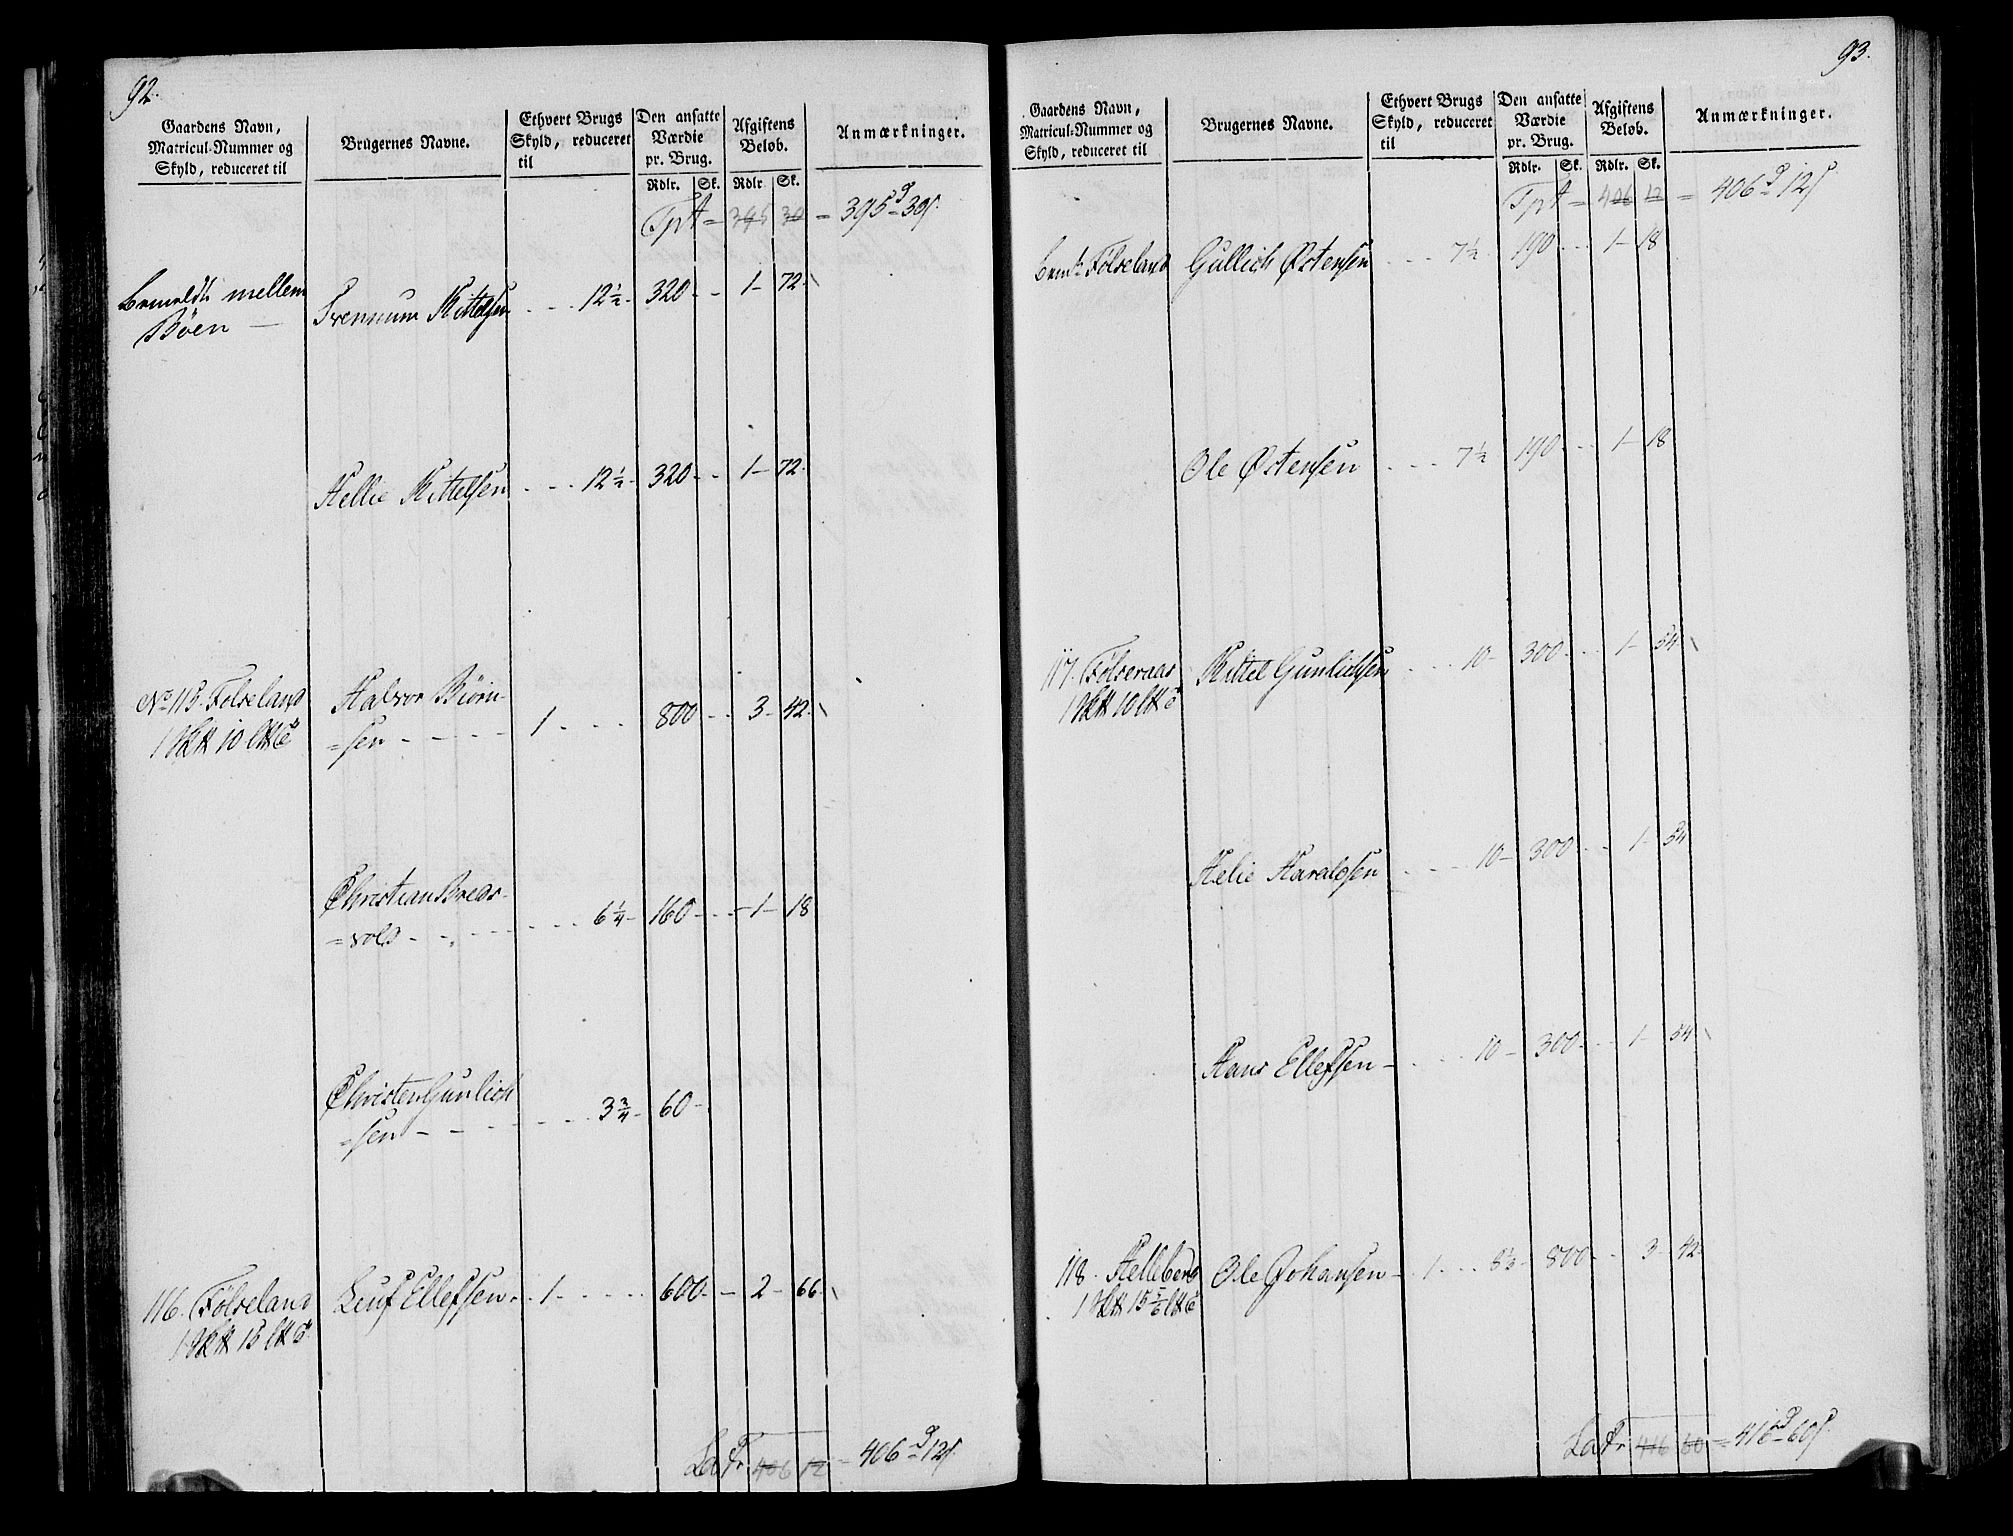 92.
Gaardens Navn,
Matricul-Nummer og
Skyld, reduceret til
Brugernes Navne.
Ethvert Brugs
Skyld, reduceret
til
Den ansatte
Værdie
pr. Brug.
Rdlr. Sk.
Afgiftens
Beløb.
Rdlr. Sk.
Anmærkninger.
Tpt = 395 30 = 395 d 30 s
mellem
Böen
Kittelsen - - - 12½ - 320 - - 1 - 72
Hellie Kittelsen - - - 12½ - 320 - - 1 - 72
No 115. Fölseland
Halvor Biörn-
=sen - - - - 1 - - - 800 - - 3 - 42
Christian Breds-
=vold - - - - - 6¼ - 160 - - 1 - 18
Christen Gunlich
=sen - - - - - 3¾ - 60 -
116. Fölseland
Leuf Ellefsen - - 1 - - - - 600 - - 2 - 66
Lat. 406 12 = 406 d 12 s
93.
Gaardens Navn,
Matricul-Nummer og
Skyld, reduceret til
Brugernes Navne.
Ethvert Brugs
Skyld, reduceret
til
Den ansatte
Værdie
pr. Brug.
Rdlr. Sk.
Afgiftens
Beløb.
Rdlr. Sk.
Anmærkninger.
Tpt = 406 12 = 406 d 12 s
Fölseland Gullich Östensen - - - 7½ - 190 - - 1 - 18
Ole Östensen - - - 7½ - 190 - - 1 - 18
117. Fölseraas Kittel Gunlichsen - - - 10 - 300 - - 1 - 54
Helie Haraldsen - - - 10 - 300 - - 1 - 54
Hans Ellefsen - - - 10 - 300 - - 1 - 54
118. Helleberg Ole Johansen - 1 - - - 8⅓ - 800 - - 3 - 42
Lat. 416 60 = 416 d 60 s